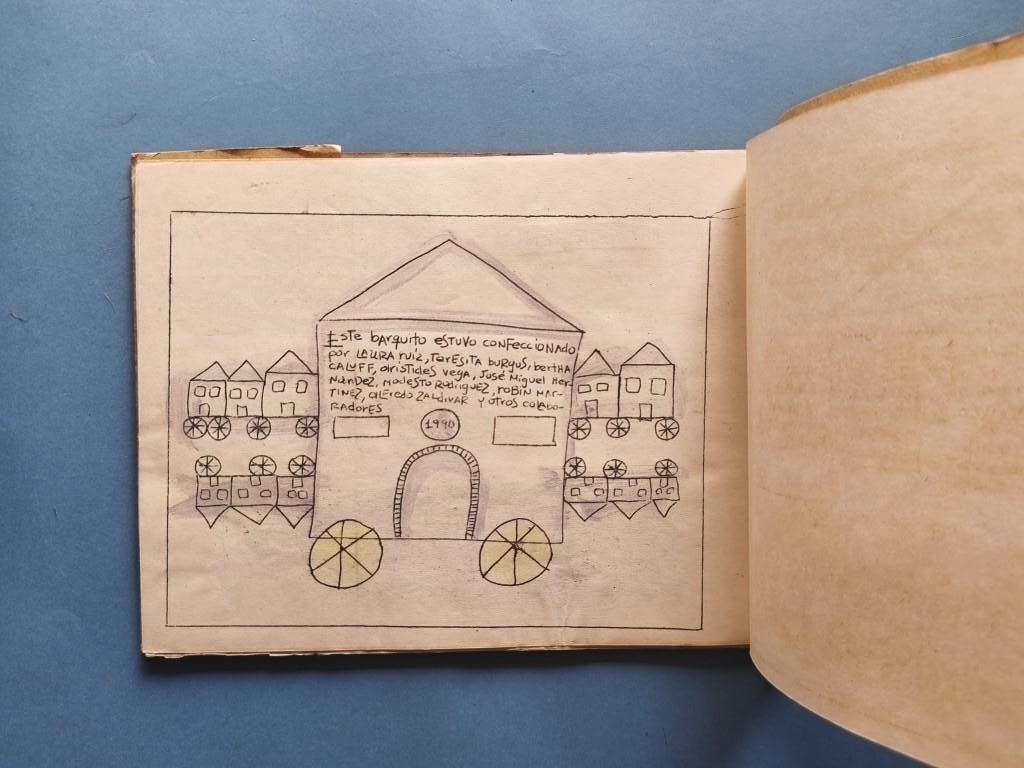 Este barquito estuvo confeccionado
por LAURA ruíz, TERESITA burgos, bertHA
CALUFF, Arístides vega, José Miguel Her-
NáNDEZ, Modesto Rodríguez, robin mar-
TÍNEZ, alfredo ZALDIVAR y otros colabo-
radores
1990